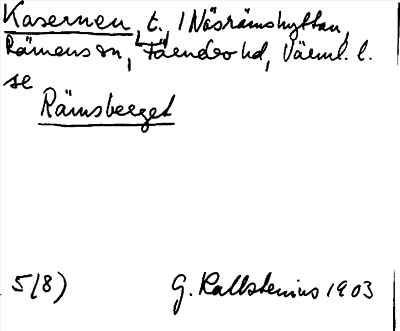 Kasernen, t., i Näsrämshyttan,
Rämens sn, Färnebo hd, Värml. l.
se
Rämsberget
5(8) G. Kallstenius 1903